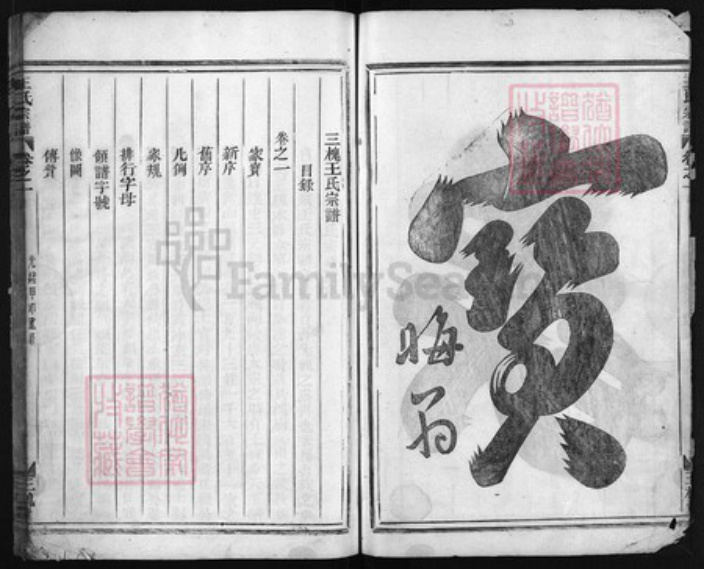 寶
晦翁
三槐王氏宗譜
目錄
卷之一
家寶
新序
舊序
凡例
家規
排行字母
領譜字號
像圖
傳贊
王氏宗譜
卷之一
FamilySearch